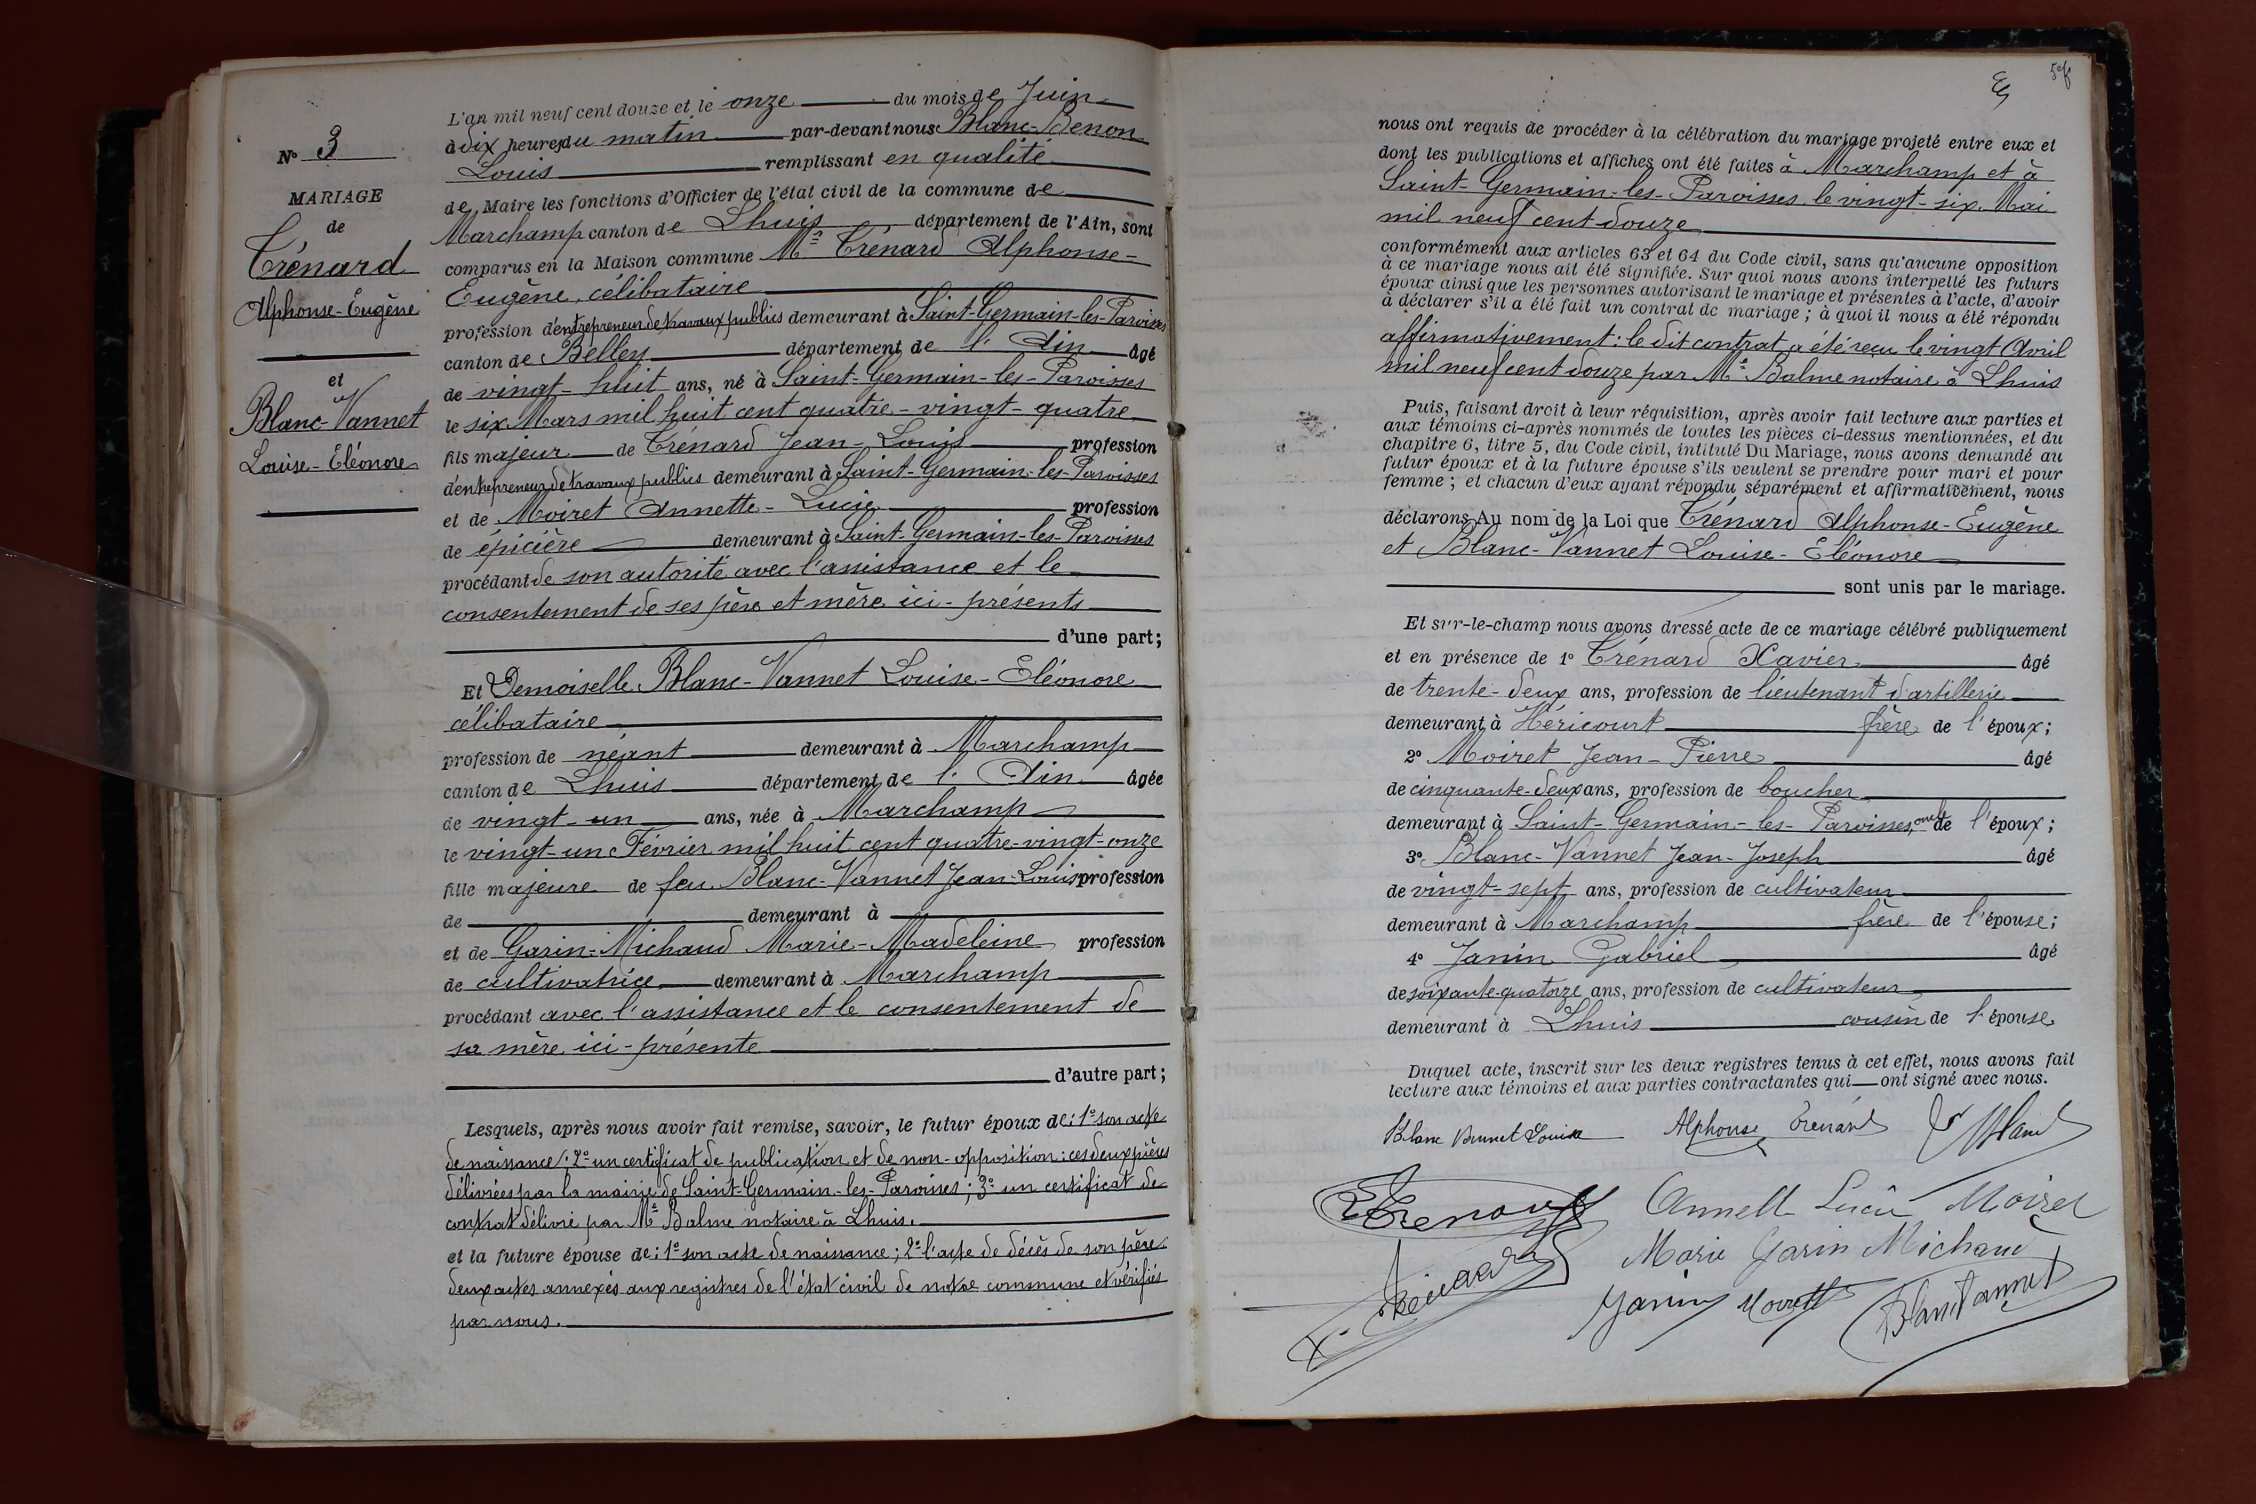 N° 3
MARIAGE
de
Trénard
Alphonse-Eugène
et
Blanc-Vannet
Louise-Eléonore
L'an mil neuf cent douze et le onze du mois de Juin
à dix heures du matin par-devant nous Blanc-Benon
Louis remplissant en qualité
de Maire les fonctions d'Officier de l'état civil de la commune de
Marchamp canton de Lhuis département de l'Ain, sont
comparus en la Maison commune Mr Trénard Alphonse-
Eugène, célibataire
profession d'entrepreneur de travaux publics demeurant à Saint-Germain-les-Paroisses
canton de Belley département de l'Ain âgé
de vingt-huit ans, né à Saint-Germain-les-Paroisses
le six Mars mil huit cent quatre-vingt-quatre
fils majeur de Trénard Jean-Louis profession
d'entrepreneur de travaux publics demeurant à Saint-Germain-les-Paroisses
et de Moiret Annette-Lucie profession
de épicière demeurant à Saint-Germain-les-Paroisses
procédant de son autorité avec l'assistance et le
consentement de ses père et mère ici-présents
d'une part;
Et Demoiselle Blanc-Vannet Louise-Eléonore
célibataire
profession de néant demeurant à Marchamp
canton de Lhuis département de l'Ain âgée
de vingt-un ans, née à Marchamp
le vingt-un Février mil huit cent quatre-vingt-onze
fille majeure de feu Blanc-Vannet Jean-Louis profession
de demeurant à
et de Garin-Michaud Marie-Madeleine profession
de cultivatrice demeurant à Marchamp
procédant avec l'assistance et le consentement de
sa mère ici-présente
d'autre part;
Lesquels, après nous avoir fait remise, savoir, le futur époux de: 1° son acte
de naissance; 2° un certificat de publication et de non-opposition: ces deux pièces
délivrées par la mairie de Saint-Germain-les-Paroisses; 3° un certificat de
contrat délivré par Me Balme notaire à Lhuis.
et la future épouse de: 1° son acte de naissance; 2° l'acte de décès de son père
deux actes annexés aux registres de l'état civil de notre commune et vérifiés
par nous.
nous ont requis de procéder à la célébration du mariage projeté entre eux et
dont les publications et affiches ont été faites à Marchamp et à
Saint-Germain-les-Paroisses le vingt-six Mai
mil neuf cent douze
conformément aux articles 63 et 64 du Code civil, sans qu'aucune opposition
à ce mariage nous ait été signifiée. Sur quoi nous avons interpellé les futurs
époux ainsi que les personnes autorisant le mariage et présentes à l'acte, d'avoir
à déclarer s'il a été fait un contrat de mariage; à quoi il nous a été répondu
affirmativement: le dit contrat a été reçu le vingt Avril
mil neuf cent douze par Me Balme notaire à Lhuis
Puis, faisant droit à leur réquisition, après avoir fait lecture aux parties et
aux témoins ci-après nommés de toutes les pièces ci-dessus mentionnées, et du
chapitre 6, titre 5, du Code civil, intitulé Du Mariage, nous avons demandé au
futur époux et à la future épouse s'ils veulent se prendre pour mari et pour
femme; et chacun d'eux ayant répondu séparément et affirmativement, nous
déclarons Au nom de la Loi que Trénard Alphonse-Eugène
et Blanc-Vannet Louise-Eléonore
sont unis par le mariage.
Et sur-le-champ nous avons dressé acte de ce mariage célébré publiquement
et en présence de 1° Trénard Xavier âgé
de trente-deux ans, profession de lieutenant d'artillerie
demeurant à Héricourt frère de l'époux;
2° Moiret Jean-Pierre âgé
de cinquante-deux ans, profession de boucher
demeurant à Saint-Germain-les-Paroisses, oncle de l'époux;
3° Blanc-Vannet Jean-Joseph âgé
de vingt-sept ans, profession de cultivateur
demeurant à Marchamp frère de l'épouse;
4° Janin Gabriel âgé
de soixante-quatorze ans, profession de cultivateur
demeurant à Lhuis cousin de l'épouse
Duquel acte, inscrit sur les deux registres tenus à cet effet, nous avons fait
lecture aux témoins et aux parties contractantes qui ont signé avec nous.
Blanc Vannet Louise Alphonse Trénard Blanc
Trénard Annette Lucie Moiret
X. Trénard Marie Garin Michaud
Janin Moiret Blanc Vannet